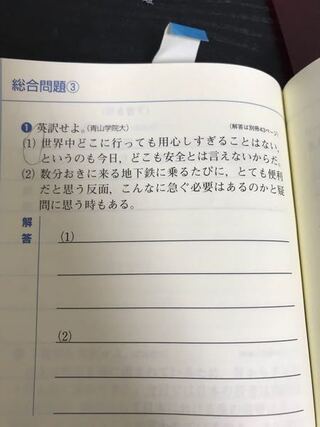 総合問題③
❶ 英訳せよ。(青山学院大) (解答は別冊43ページ)
(1) 世界中どこに行っても用心しすぎることはない。
というのも今日，どこも安全とは言えないからだ。
(2) 数分おきに来る地下鉄に乗るたびに，とても便利
だと思う反面，こんなに急ぐ必要はあるのかと疑
問に思う時もある。
解答
(1)
(2)